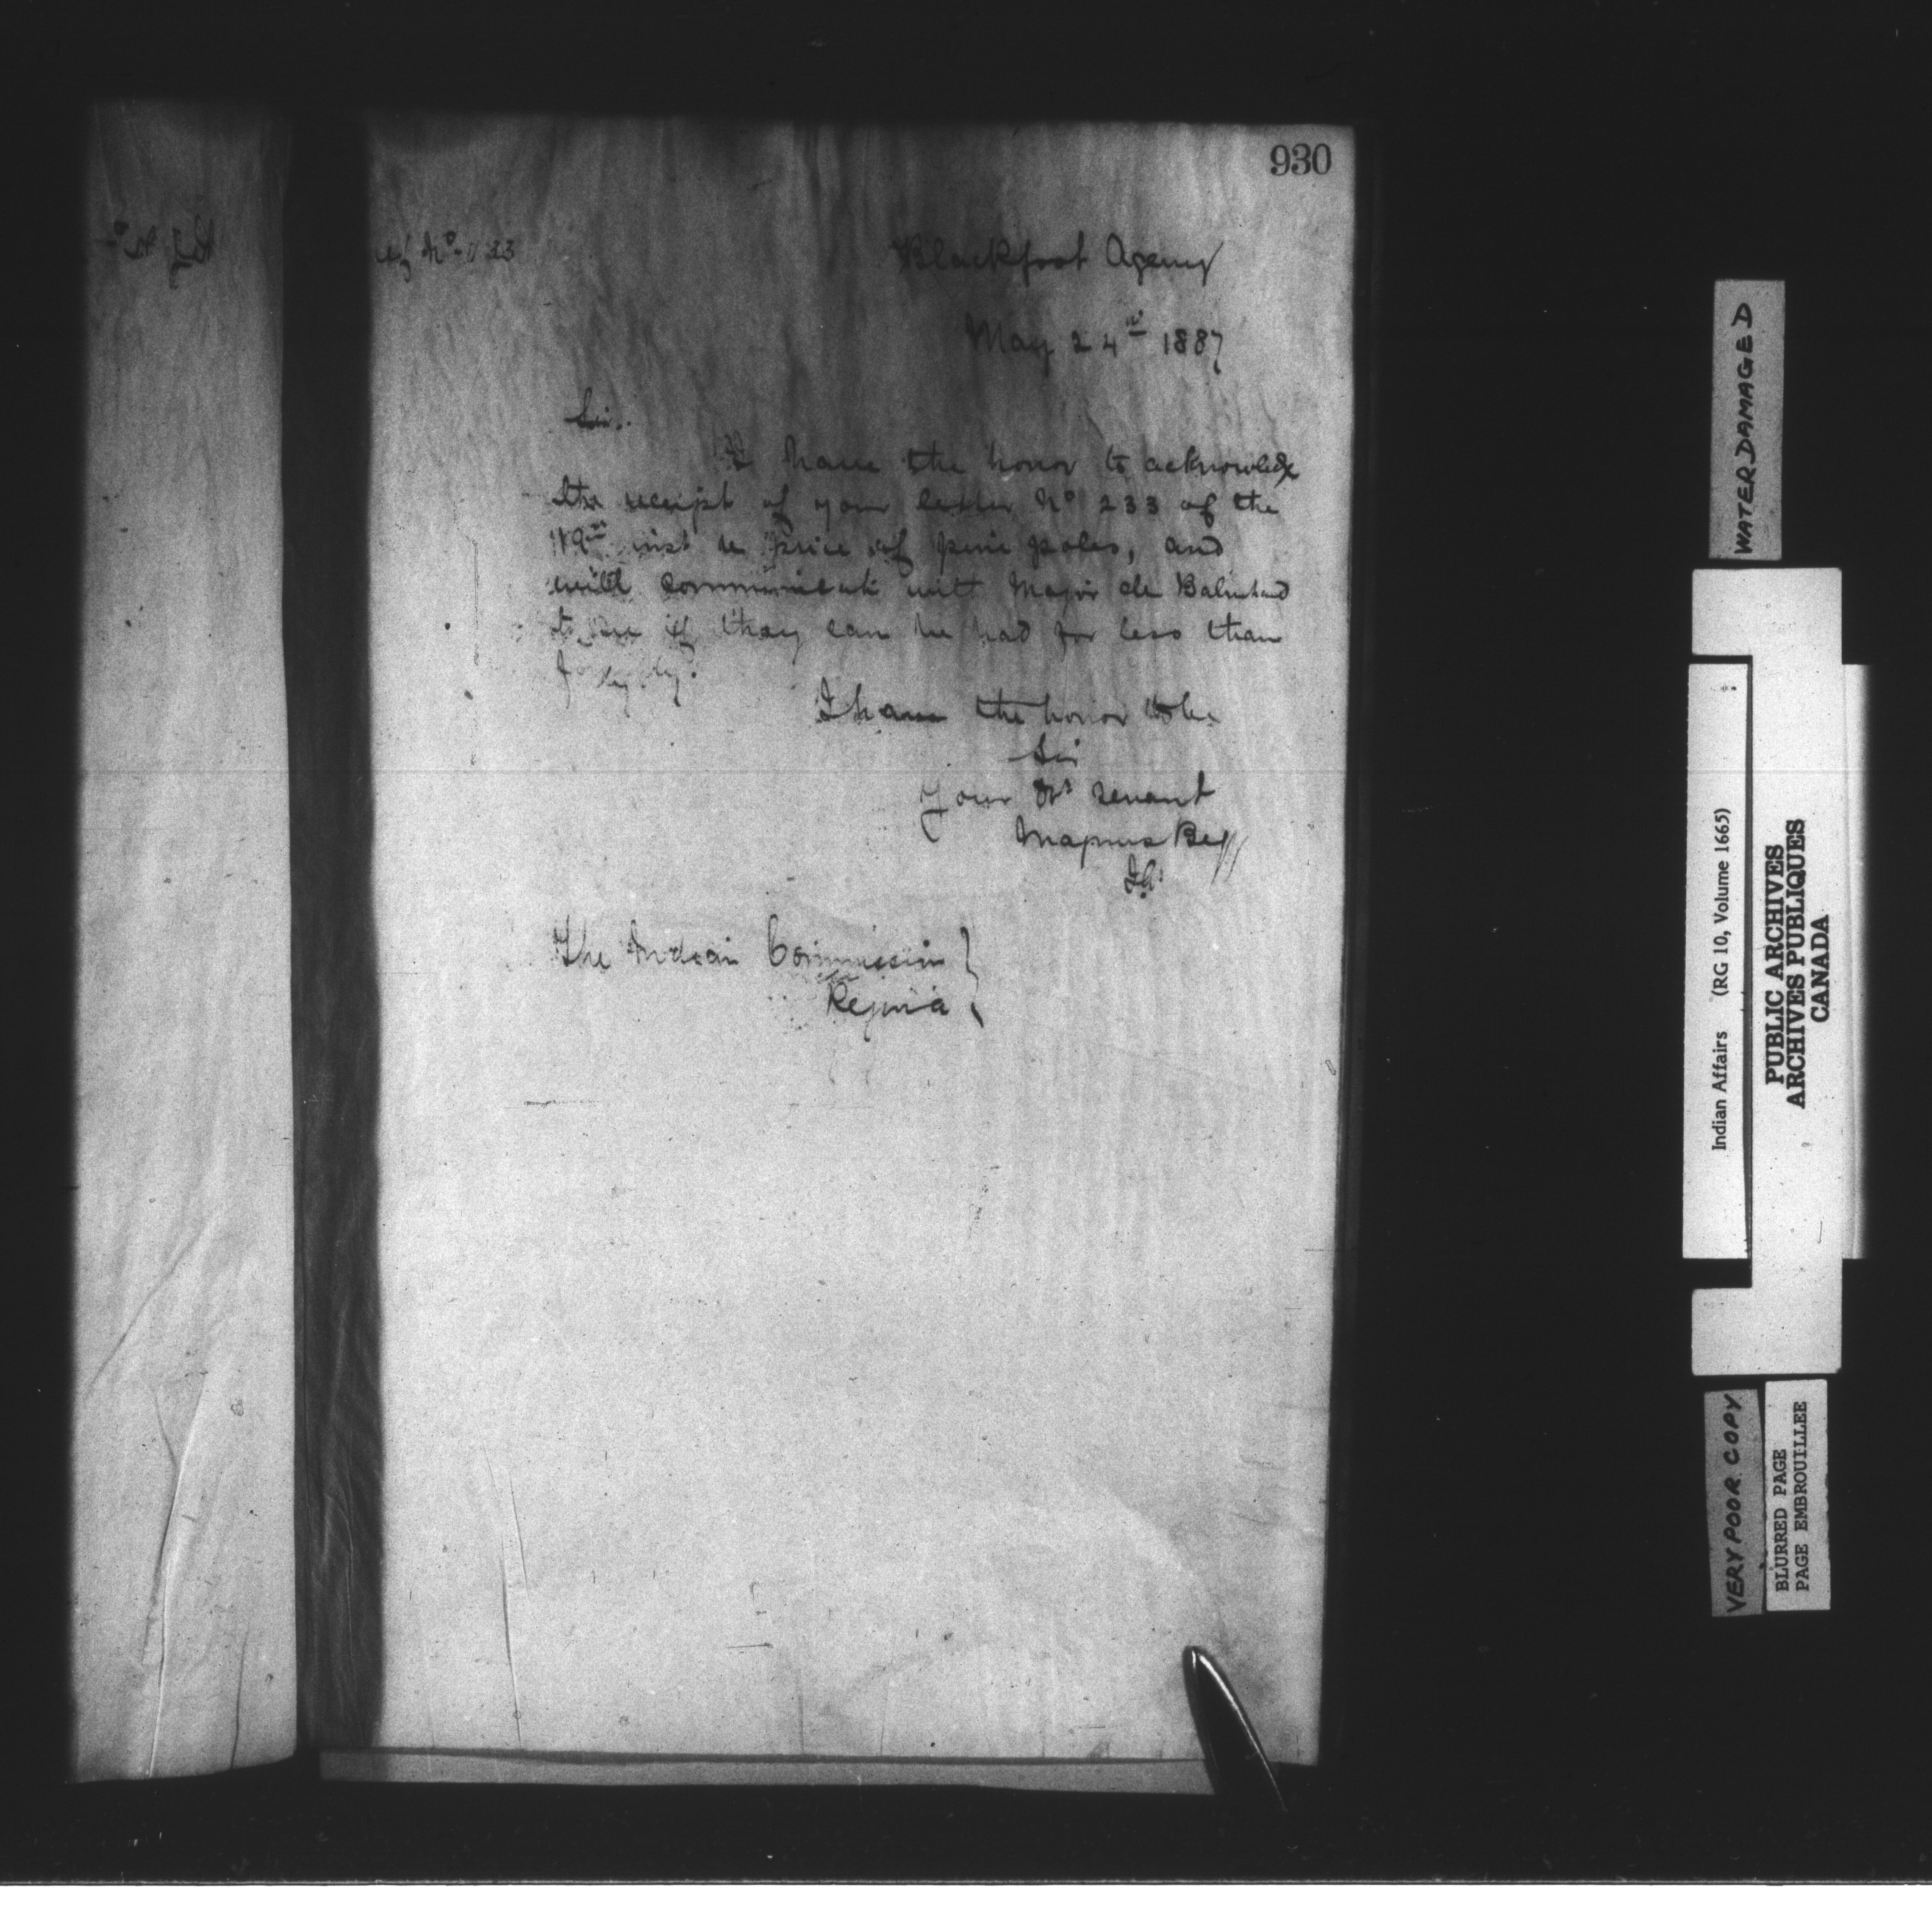 930
Nº
Blackfoot Agency
May 24th 1887
Sir.
I have the honor to acknowledge
the receipt of your letter Nº 233 of the
19th inst re price of pine poles, and
will communicate with Major de Balinhard
to see if they can be had for less than
I have the honor to be
Sir
Your servant
Magnus Begg
I.A.
The Indian Commission
Regina
WATERDAMAGED
Indian Affairs (RG 10, Volume 1665)
PUBLIC ARCHIVES
ARCHIVES PUBLIQUES
CANADA
VERY POOR COPY
BLURRED PAGE
PAGE EMBROUILLEE